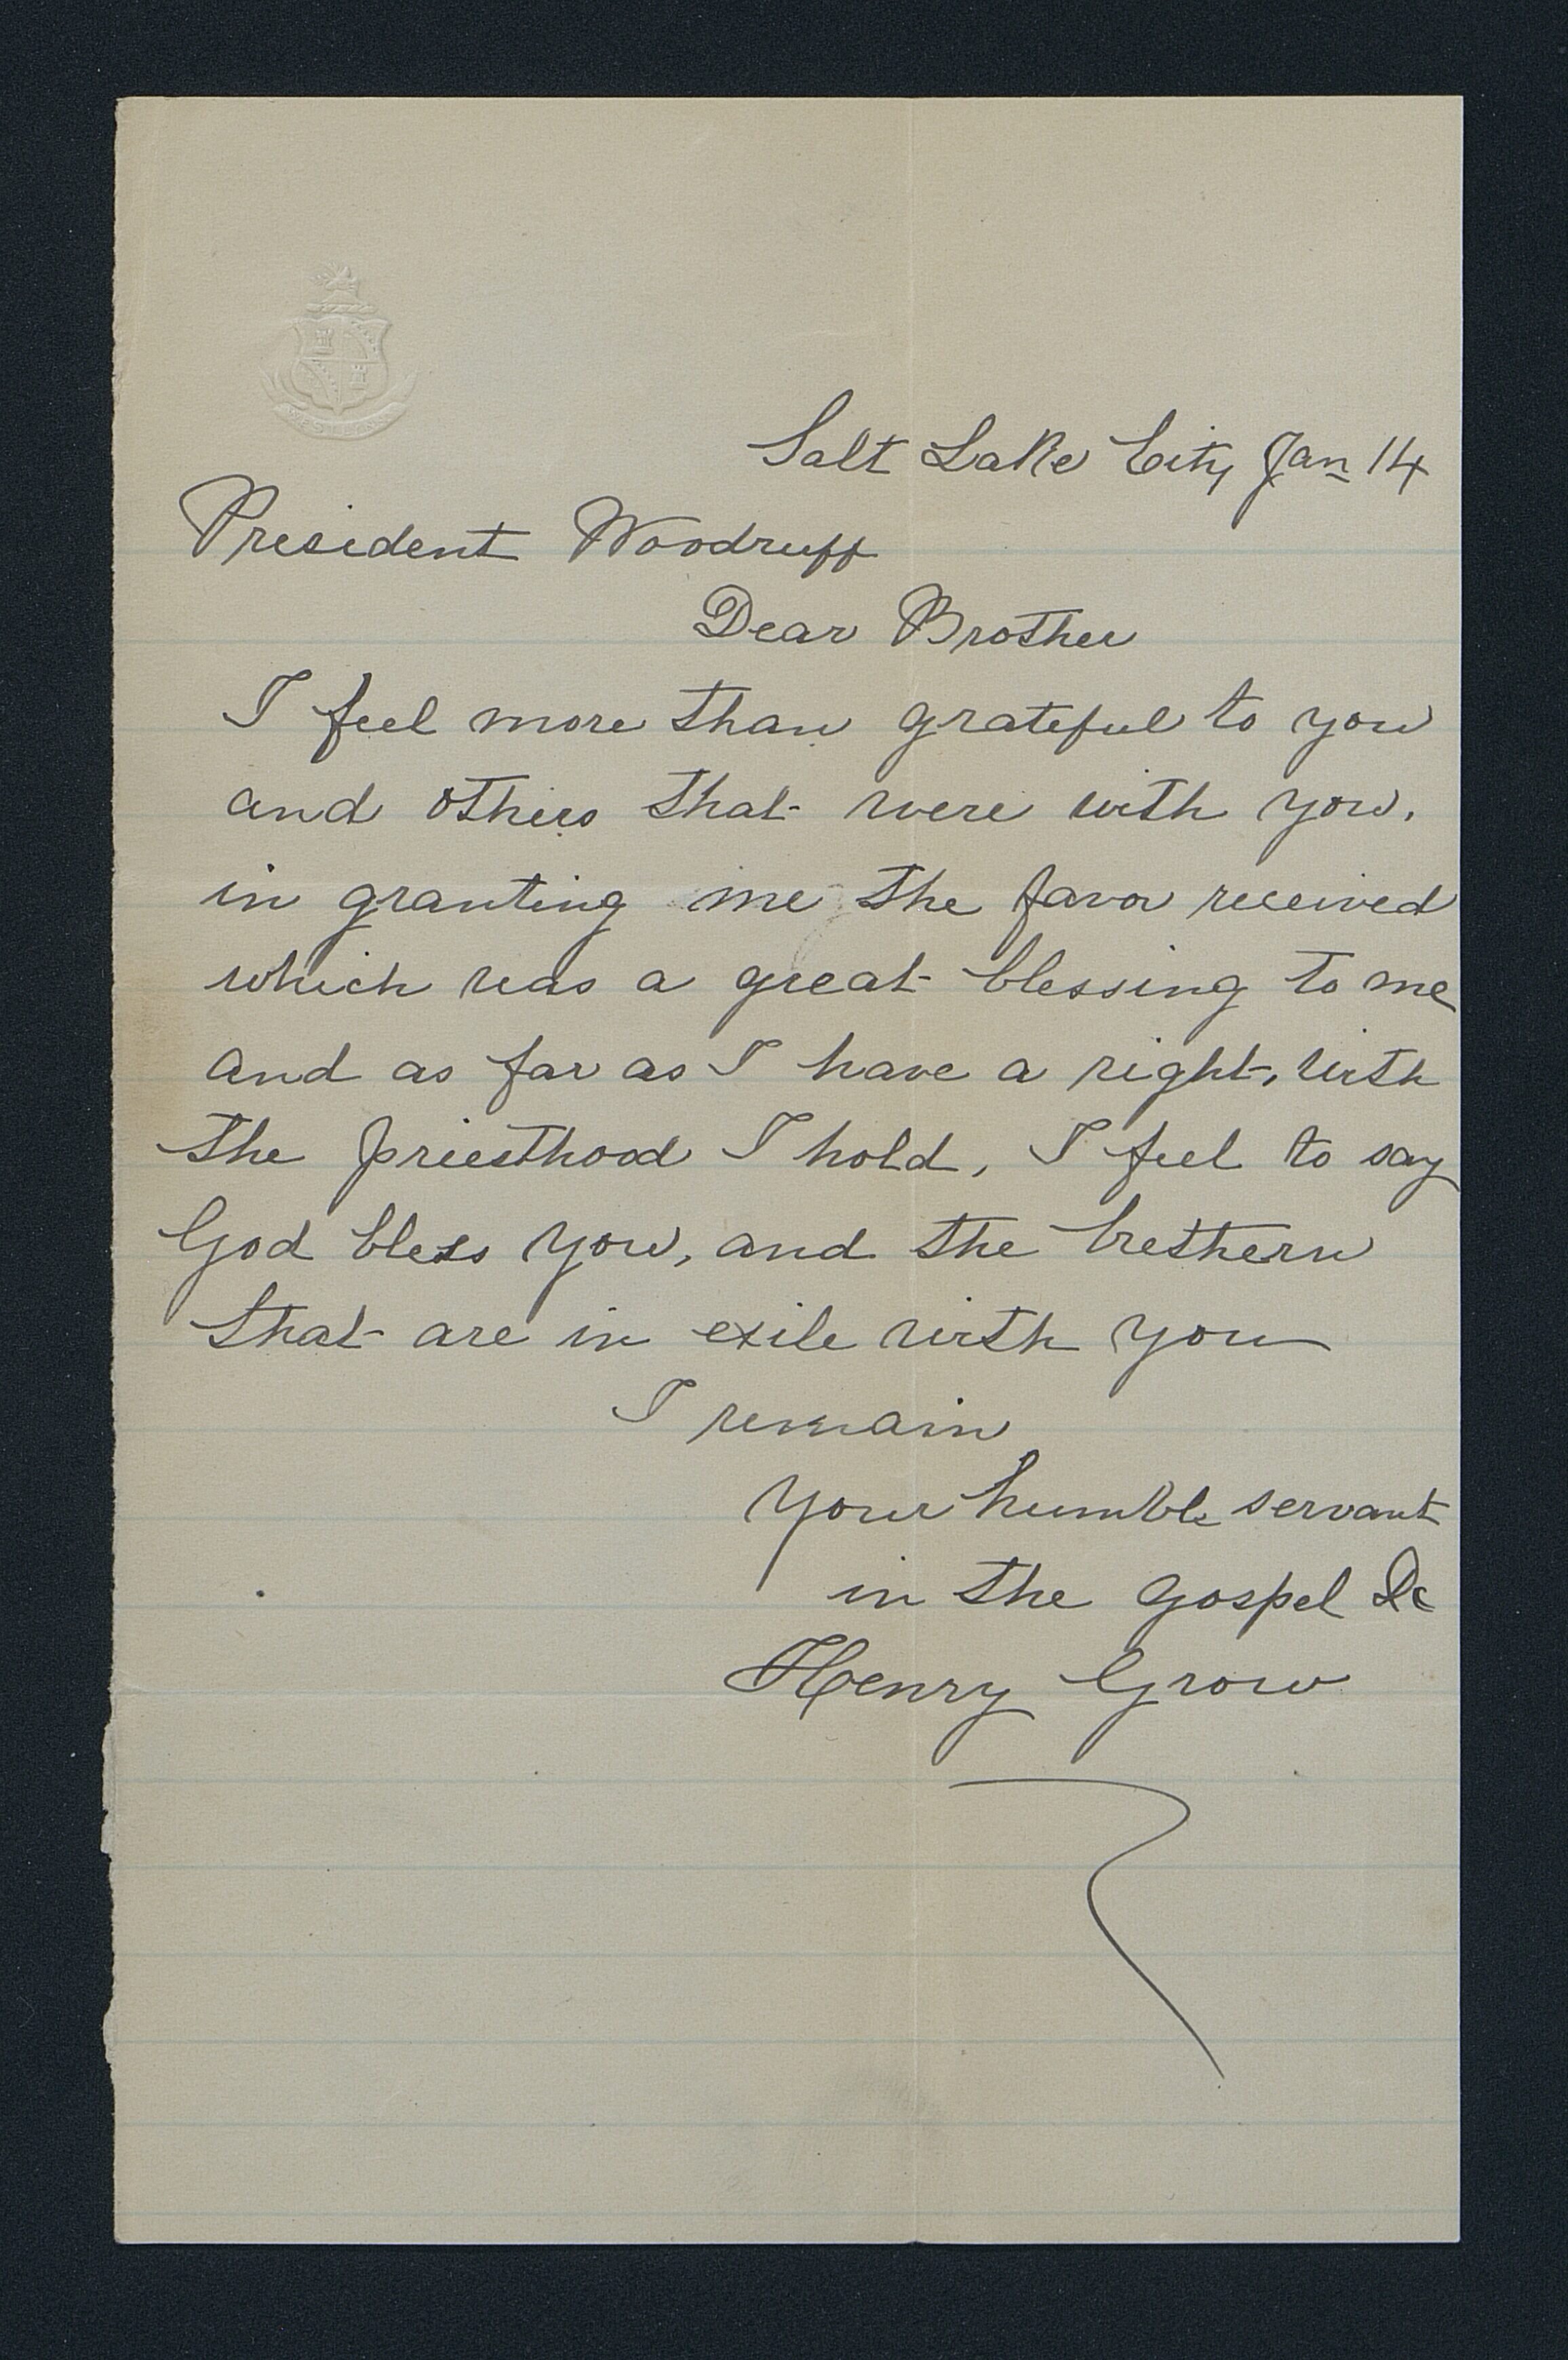 Salt Lake City Jan 14
President Woodruff
Dear Brother
I feel more than grateful to you
and others that were with you,
in granting me the favor received
which was a great blessing to me
and as far as I have a right, with
the priesthood I hold, I feel to say
God bless you, and the brethern
that are in exile with you
I remain
your humble servant
in the gospel &c
Henry Grow